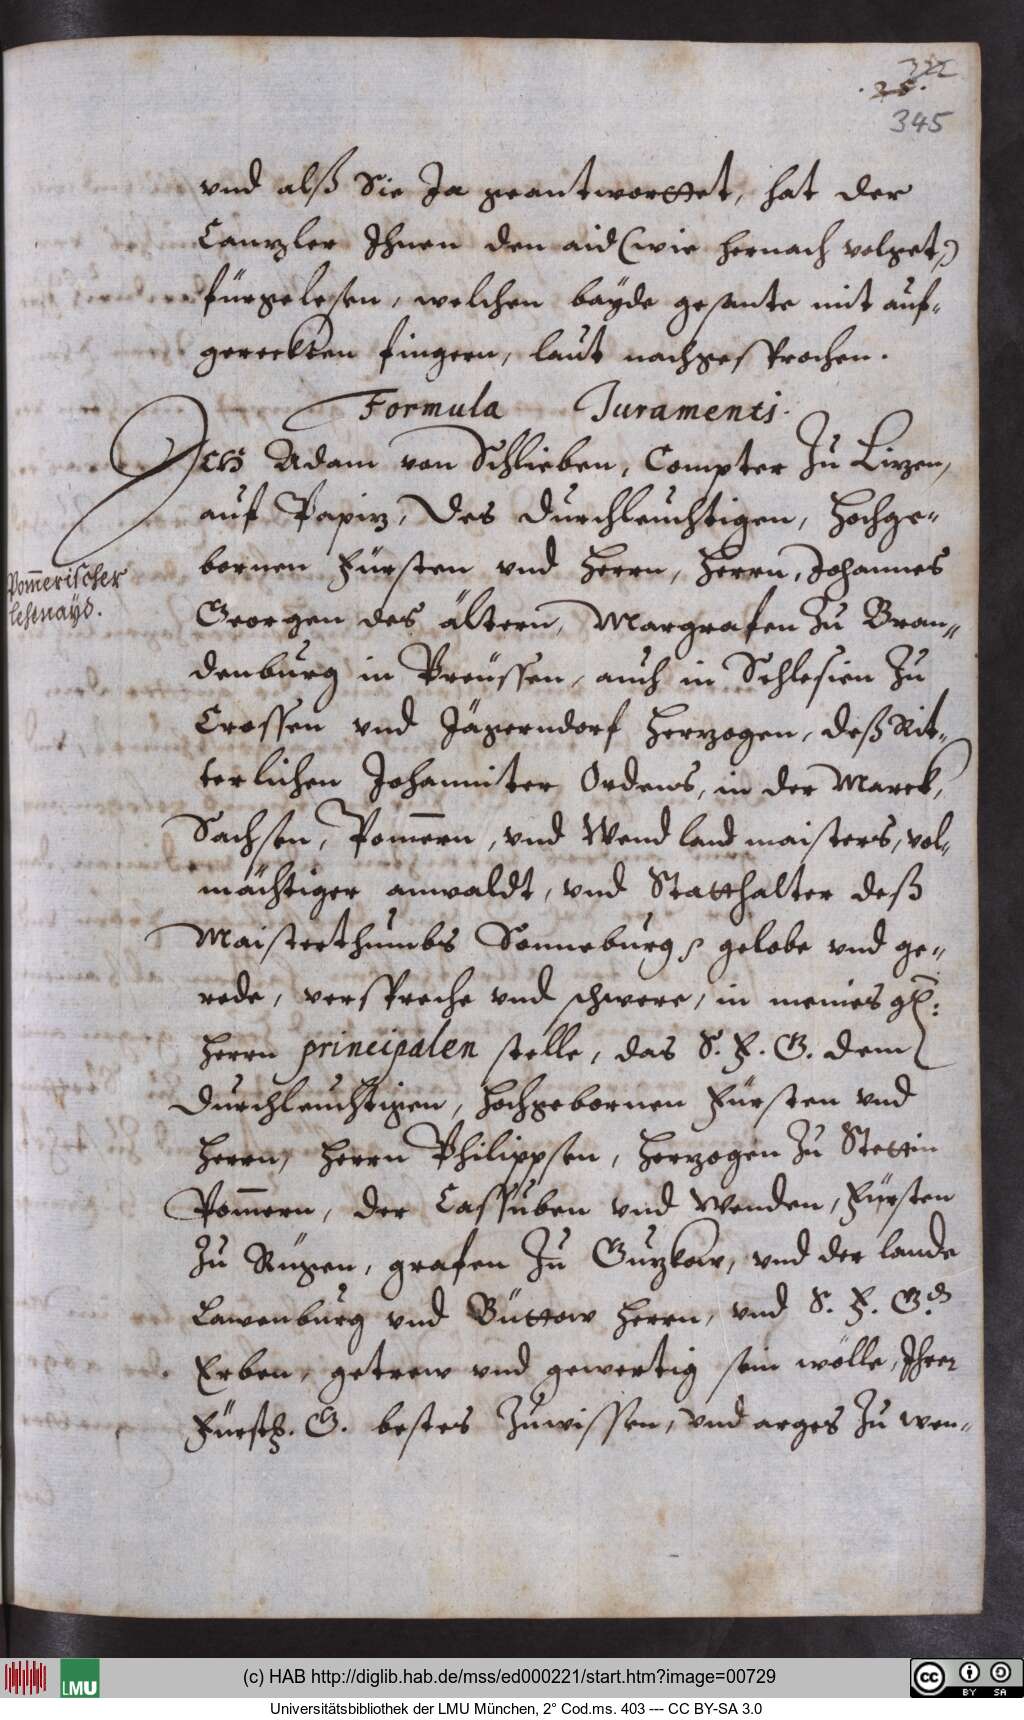 322
.25.
345
vnd alß Sie Ja geantworttet, hat der
Canzler Ihnen den aid (wie hernach volget,)
fürgelesen, welchen bayde gesante mit auf-
gereckten fingern, laut nachgesprochen.
Formula Juramenti.
Ich Adam von Schlieben, Compter Zu Lizen,
auf Papiz, Des durchleuchtigen, hochge-
bornen Fürsten vnd herrn, herrn, Johannes
Georgen des ältern, Margrafen Zu Bran-
denburg in Preüssen, auch in Schlesien Zu
Crossen vnd Jägerndorf herzogen, deß Rit-
terlichen Johanniter Ordens, in der Marck,
Sachsen, Pom̄ern, vnd Wend land maisters, vol-
mächtiger anwaldt, vnd Statthalter deß
Maisterthumbs Sonneburgs gelobe vnd ge-
rede, verspreche vnd schwere, in meines gl:
herrn principalen stelle, das S. F. G. dem
durchleuchtigen, hochgebornen Fürsten vnd
herrn, herrn Philippsen, herzogen Zu Stettin
Pom̄ern, der Cassuben vnd Wenden, Fürsten
Zu Rügen, grafen Zu Guzkow, vnd der lande
Lawenburg vnd Büttow herrn, vnd S. F. G.
Erben, getrew vnd gewertig sein wölle, Ihrer
Fürstl. G. bestes Zuwissen, vnd arges Zu wen-
Pom̄erischer
lehenayd.
(c) HAB http://diglib.hab.de/mss/ed000221/start.htm?image=00729
LMU
cc BY SA
Universitätsbibliothek der LMU München, 2° Cod.ms. 403 --- CC BY-SA 3.0